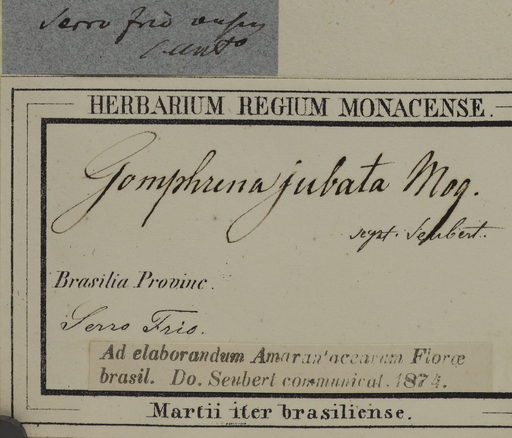 Serro frio
HERBARIUM REGIUM MONACENSE.
Gomphrena jubata Moq.
Seubert.
Brasilia Provinc.
Serro Frio.
Ad elaborandum Amarantacearum Floræ
brasil. Do. Seubert communicat. 1874.
Martii iter brasiliense.